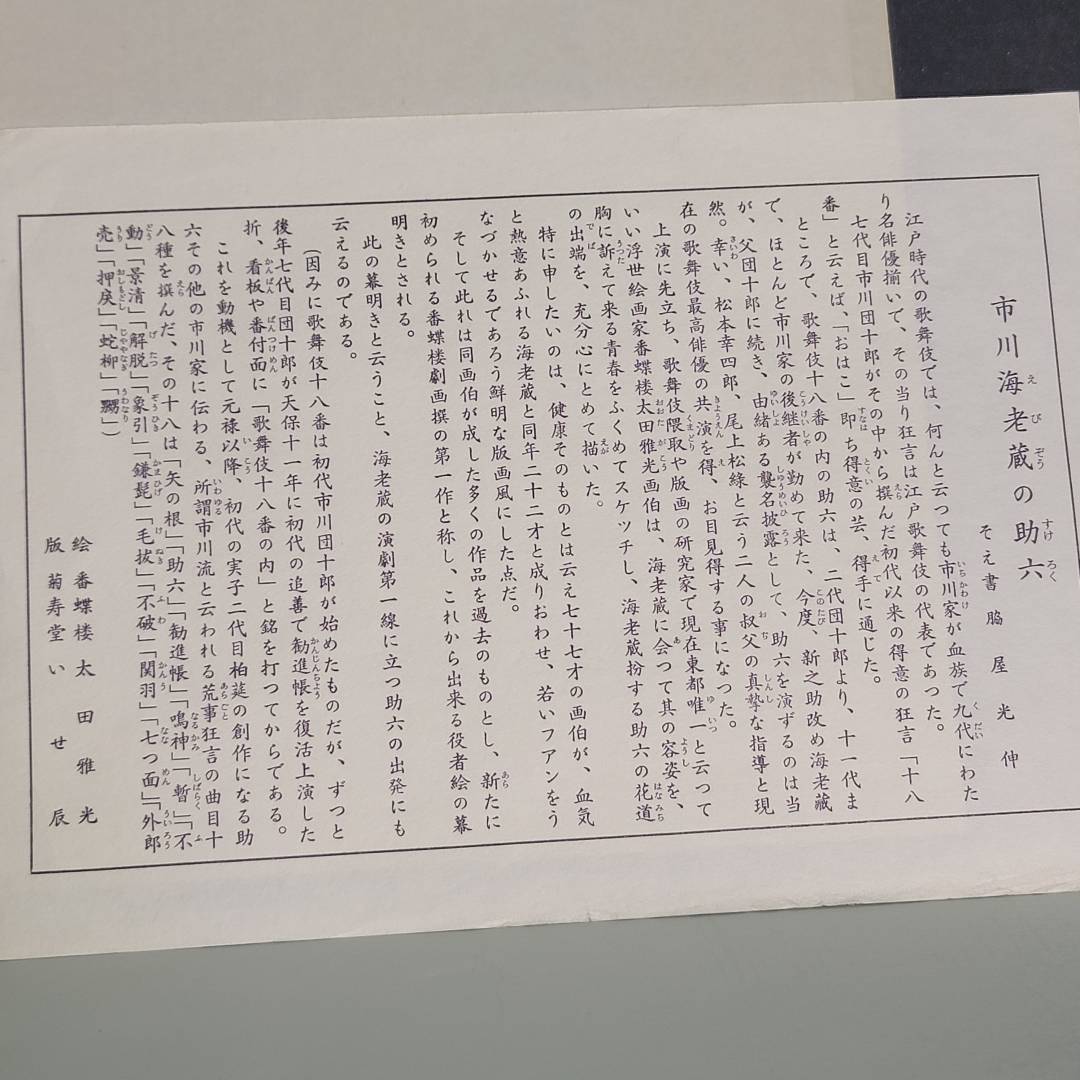 市川海老蔵の助六
そえ書 脇屋光伸
江戸時代の歌舞伎では、何んと云つても市川家が血族で九代にわた
り名俳優揃いで、その当り狂言は江戸歌舞伎の代表であつた。
七代目市川団十郎がその中から撰んだ初代以来の得意の狂言「十八
番」と云えば、「おはこ」即ち得意の芸、得手に通じた。
ところで、歌舞伎十八番の内の助六は、二代団十郎より、十一代ま
で、ほとんど市川家の後継者が勤めて来た、今度、新之助改め海老蔵
が、父団十郎に続き、由緒ある襲名披露として、助六を演ずるのは当
然。幸い、松本幸四郎、尾上松緑と云う二人の叔父の真摯な指導と現
在の歌舞伎最高俳優の共演を得、お目見得する事になつた。
上演に先立ち、歌舞伎隈取や版画の研究家で現在東都唯一と云つて
いい浮世絵画家番蝶楼太田雅光画伯は、海老蔵に会つて其の容姿を、
胸に訴えて来る青春をふくめてスケッチし、海老蔵扮する助六の花道
の出端を、充分心にとめて描いた。
特に申したいのは、健康そのものとは云え七十七才の画伯が、血気
と熱意あふれる海老蔵と同年二十二才と成りおわせ、若いフアンをう
なづかせるであろう鮮明な版画風にした点だ。
そして此れは同画伯が成した多くの作品を過去のものとし、新たに
初められる番蝶楼劇画撰の第一作と称し、これから出来る役者絵の幕
明きとされる。
此の幕明きと云うこと、海老蔵の演劇第一線に立つ助六の出発にも
云えるのである。
(因みに歌舞伎十八番は初代市川団十郎が始めたものだが、ずつと
後年七代目団十郎が天保十一年に初代の追善で勧進帳を復活上演した
折、看板や番付面に「歌舞伎十八番の内」と銘を打つてからである。
これを動機として元禄以降、初代の実子二代目柏莚の創作になる助
六その他の市川家に伝わる、所謂市川流と云われる荒事狂言の曲目十
八種を撰んだ、その十八は「矢の根」「助六」「勧進帳」「鳴神」「暫」「不
動」「景清」「解脱」「象引」「鎌髭」「毛抜」「不破」「関羽」「七つ面」「外郎
売」「押戻」「蛇柳」「嬲」)
絵 番蝶楼 太田雅光
版 菊寿堂 いせ辰